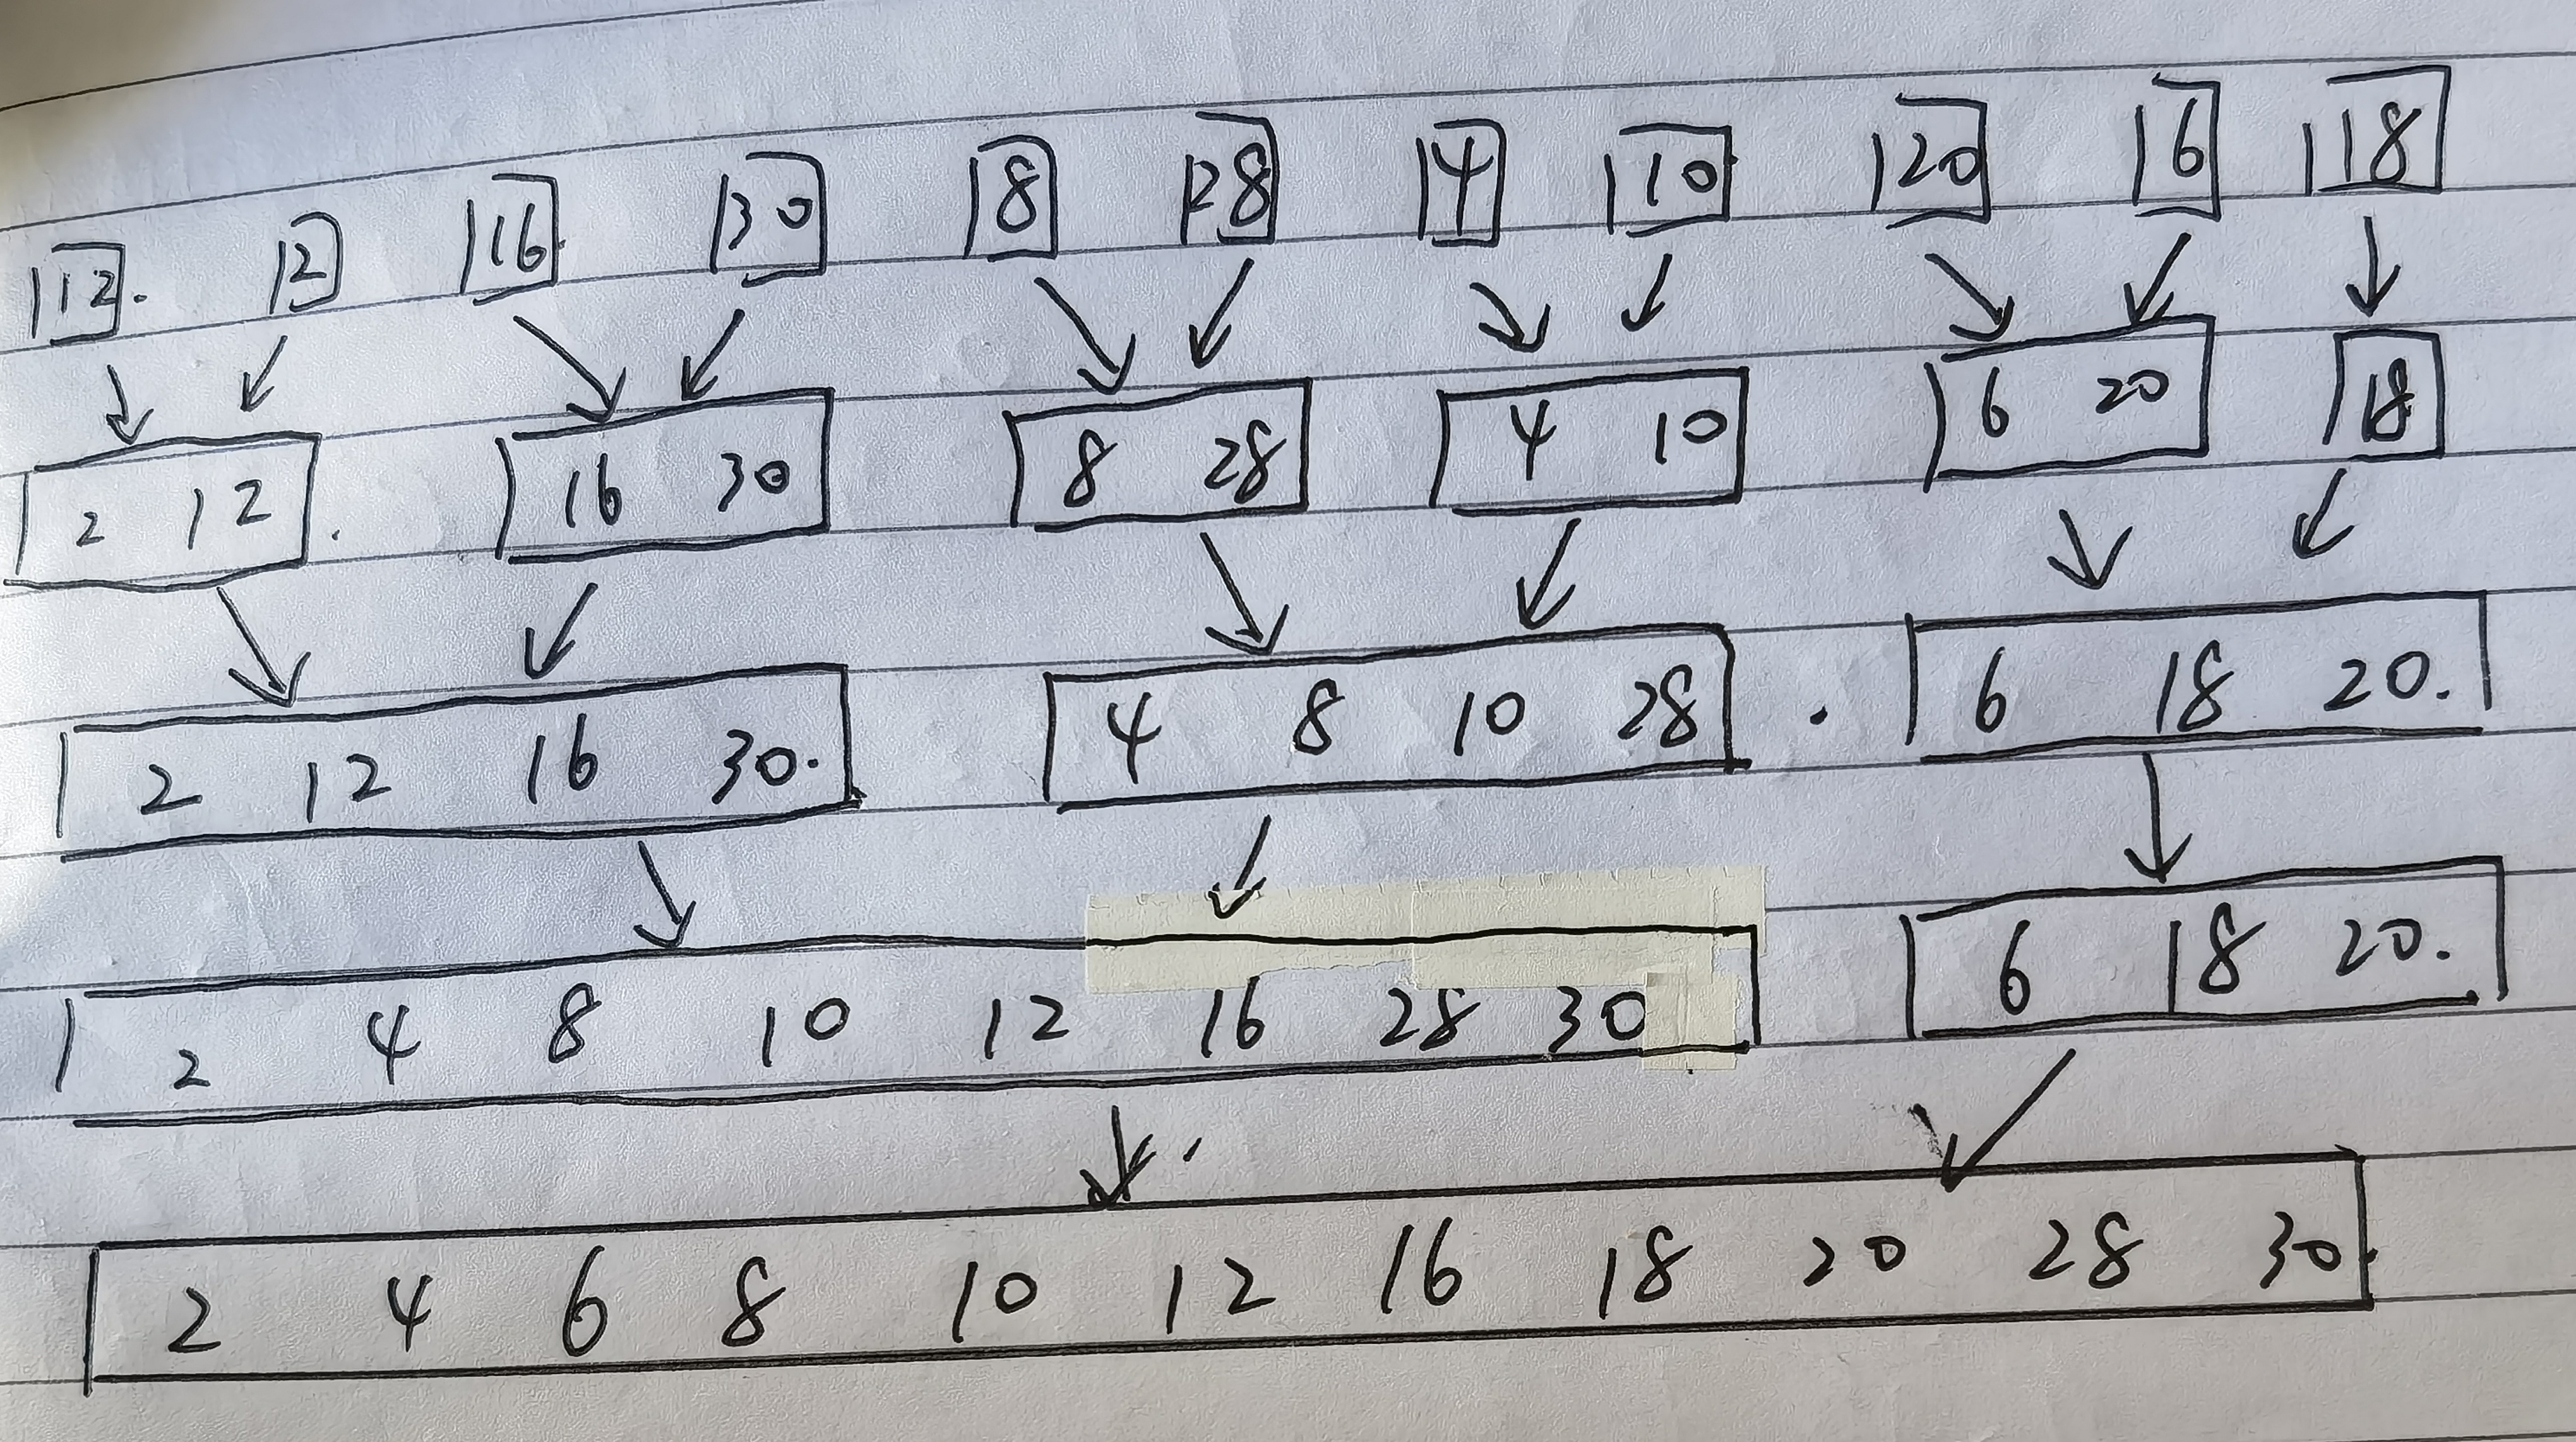 12. 2 16 30 8 28 4 10 20 6 18
2 12. 16 30 8 28 4 10 6 20 18
2 12 16 30. 4 8 10 28 . 6 18 20.
2 4 8 10 12 16 28 30 6 18 20.
2 4 6 8 10 12 16 18 20 28 30.